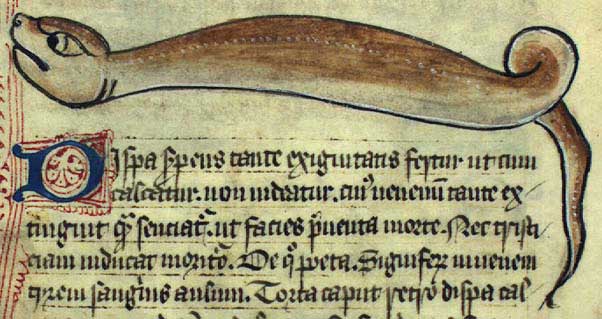 Dispa sṕens tante exiguitatis fertur ut cum
calceatur. non uideatur. cuiꝰ uenenū tante ex
tinguit senciat᷑. ut facies p̄uenta morte. Nec tristi
ciam inducat morit᷑o. De qͦ poeta. Signifeꝝ iuuenem
tyrem aulum. Torta caput retro dispa cal